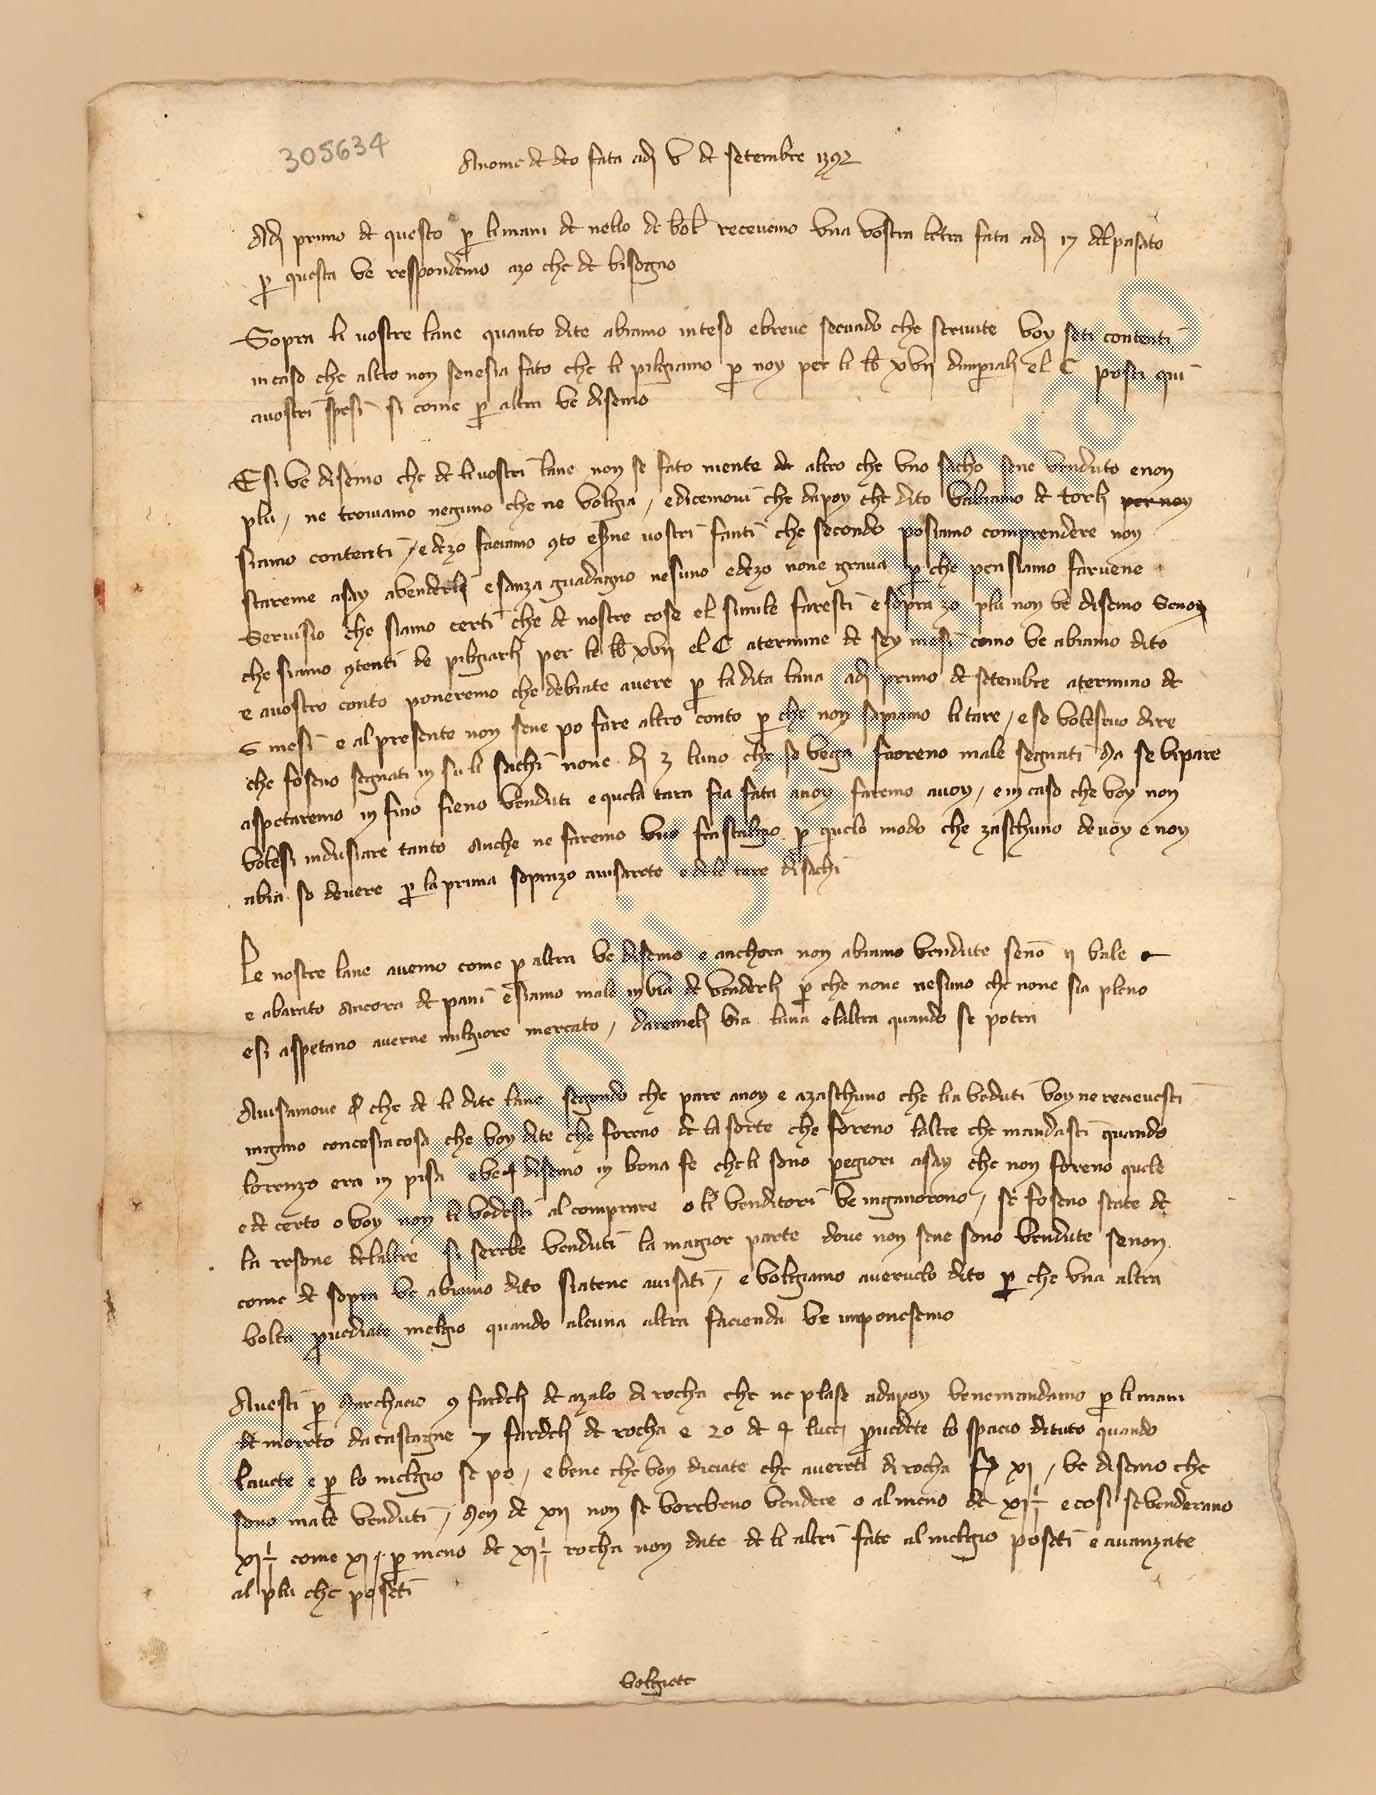 305634
Anome de dio fata adi V de setembre 1392
Adi primo de questo per li mani de nello de bol recevemo una vostra letra fata adi 17 del pasato
per questa ve respondemo azo che de bisogno
Sopra li vostre lane quanto dite abiamo inteso e breve secundo che scrivite voy seti contenti
in caso che altro non sene sia fato che li pilgiamo per noy per li lb xvii d'imperiali el C posti qui
a vostri spesi si come per altra ve disemo
E si ve disemo che de li vostri lane non se fato niente de altro che uno sacho sene venduto e non
plu / ne trovamo neguno che ne volgia / e dicemovi che dapoy che dito l'abiamo de torli per noy
siamo contenti / e dezo faciamo conto esine vostri fanti che secondo posiamo comprendere noy
staremo asay a venderli e sanza guadagno nesuno e dezo none grava per che pensiamo farvene
servisio che siamo certi che de nostre cose el simile faresti e sopra zo plu non ve disemo senon
che siamo contenti de pilgiarli per li lb xvii el C a termine de sey mesi como ve abiamo dito
e a vostro conto poneremo che debiate avere per la dita lana adi primo de setembre a termino de
6 mesi e al presente non sene po fare altro conto per che non sapiamo li tare / e se volesevo dire
che foseno segnati in su li sachi none di 3 l'uno che se vega foreno male segnati Ma se vi pare
aspetaremo in fino sieno venduti e quela tara sia fata a noy faremo a voy / e in caso che voy non
volesi indusiare tanto Anche ne faremo uno fra stalgio per quelo modo che zaschuno de voy e noy
abia so devere per la prima sopra zo avisarete e dele tare di sachi
Le nostre lane avemo come per altra ve disemo e anchora non abiamo vendute seno ii bale
e a barato Ancora de pani e siamo male in via de venderli per che none nesuno che none sia pleno
e si aspetano averne milgiore mercato / daremoli via l'una e l'altra quando se potra
Avisamove che de li dite lane segondo che pare a noy e a zaschuno che li a veduti voy ne recievesti
ingano concosiacosa che voy dite che foreno de la sorte che foreno l'altre che mandasti quando
lorenzo era in pisa e ve disemo in bona fe che li sono pegiori asay che non foreno quele
e de certo o voy non li vedesti al comprare o li venditori ve inganorono / se foseno state de
la resone de l'altre si serebe venduti la magior parte dove non sene sono vendute senon
come de sopra ve abiamo dito siatene avisati / e volgiamo avervelo dito per che una altra
volta provediate melgio quando alcuna altra facienda ve imponesemo
Avesti per Marchacio 9 fardeli de azalo di rocha che ne plase a dapoy ve ne mandamo per li mani
de moreto da castagne 7 fardeli de rocha e 20 de 4 luci provedete lo spacio di tuto quando
l'avete e per lo melgio se po / e bene che voy diciate che avereti di rocha xi / ve disemo che
sono male venduti / Men de xii non se vorebeno vendere o al meno de xi 1/2 e cosi se venderano
xi 1/2 come xi / per meno de xi 1/2 rocha non date de li altri fate al melgio poseti e avanzate
al plu che poseti
volgiate